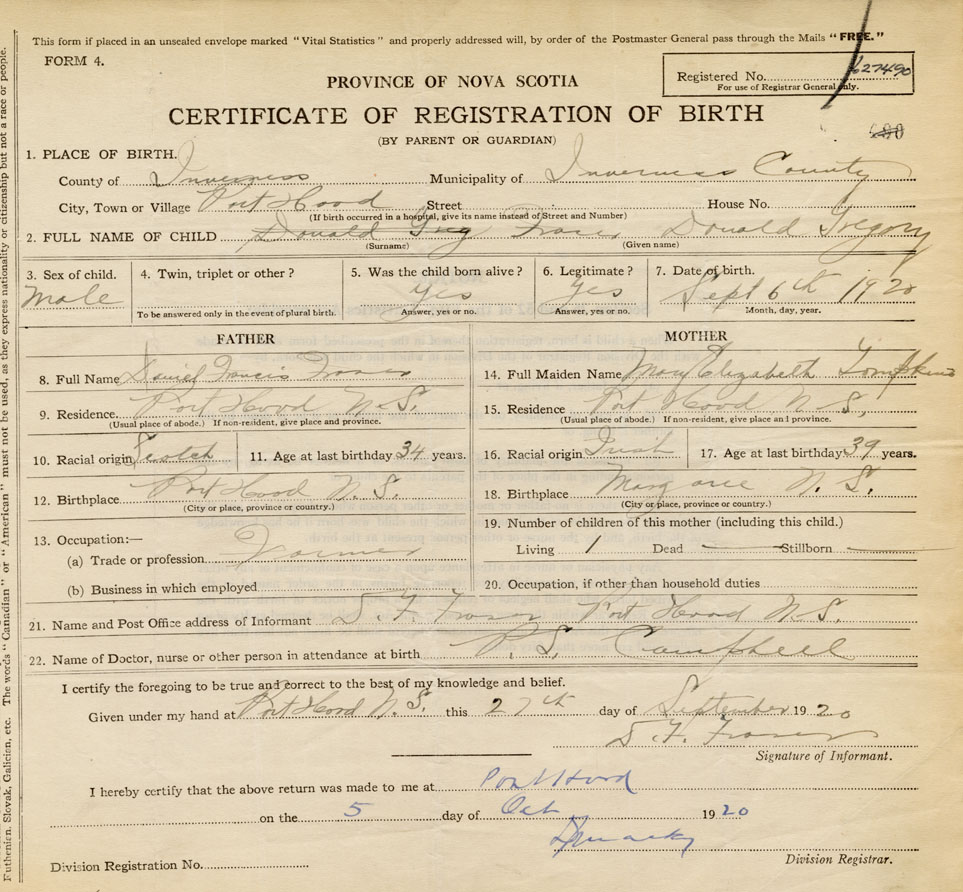 This form if placed in an unsealed envelope marked "Vital Statistics" and properly addressed will, by order of the Postmaster General pass through the Mails "FREE."
FORM 4.
Registered No. 627490
For use of Registrar General only.
PROVINCE OF NOVA SCOTIA
CERTIFICATE OF REGISTRATION OF BIRTH
(BY PARENT OR GUARDIAN)
1. PLACE OF BIRTH.
County of Inverness Municipality of Inverness County
City, Town or Village Port Hood Street House No.
(If birth occurred in a hospital, give its name instead of Street and Number)
2. FULL NAME OF CHILD Donald Greg Fraser Donald Gregory
(Surname) (Given name)
3. Sex of child. 4. Twin, triplet or other? 5. Was the child born alive? 6. Legitimate? 7. Date of birth.
Male Yes Yes Sept 6th 1920
To be answered only in the event of plural birth. Answer, yes or no. Answer, yes or no. Month, day, year.
FATHER
8. Full Name Daniel Francis Fraser
9. Residence Port Hood N.S.
(Usual place of abode.) If non-resident, give place and province.
10. Racial origin Scotch 11. Age at last birthday 34 years.
12. Birthplace Port Hood N.S.
(City or place, province or country.)
13. Occupation:—
(a) Trade or profession Farmer
(b) Business in which employed
MOTHER
14. Full Maiden Name Mary Elizabeth Tompkins
15. Residence Port Hood N.S.
(Usual place of abode.) If non-resident, give place and province.
16. Racial origin Irish 17. Age at last birthday 39 years.
18. Birthplace Margaree N.S.
(City or place, province or country.)
19. Number of children of this mother (including this child.)
Living 1 Dead — Stillborn —
20. Occupation, if other than household duties
21. Name and Post Office address of Informant D. F. Fraser Port Hood N.S.
22. Name of Doctor, nurse or other person in attendance at birth P. S. Campbell
I certify the foregoing to be true and correct to the best of my knowledge and belief.
Given under my hand at Port Hood N.S. this 27th day of September 1920
D. F. Fraser
Signature of Informant.
I hereby certify that the above return was made to me at Port Hood
on the 5 day of Oct 1920
Division Registrar.
Division Registration No.
Ruthenian, Slovak, Galician, etc. The words "Canadian" or "American" must not be used, as they express nationality or citizenship but not a race or people.